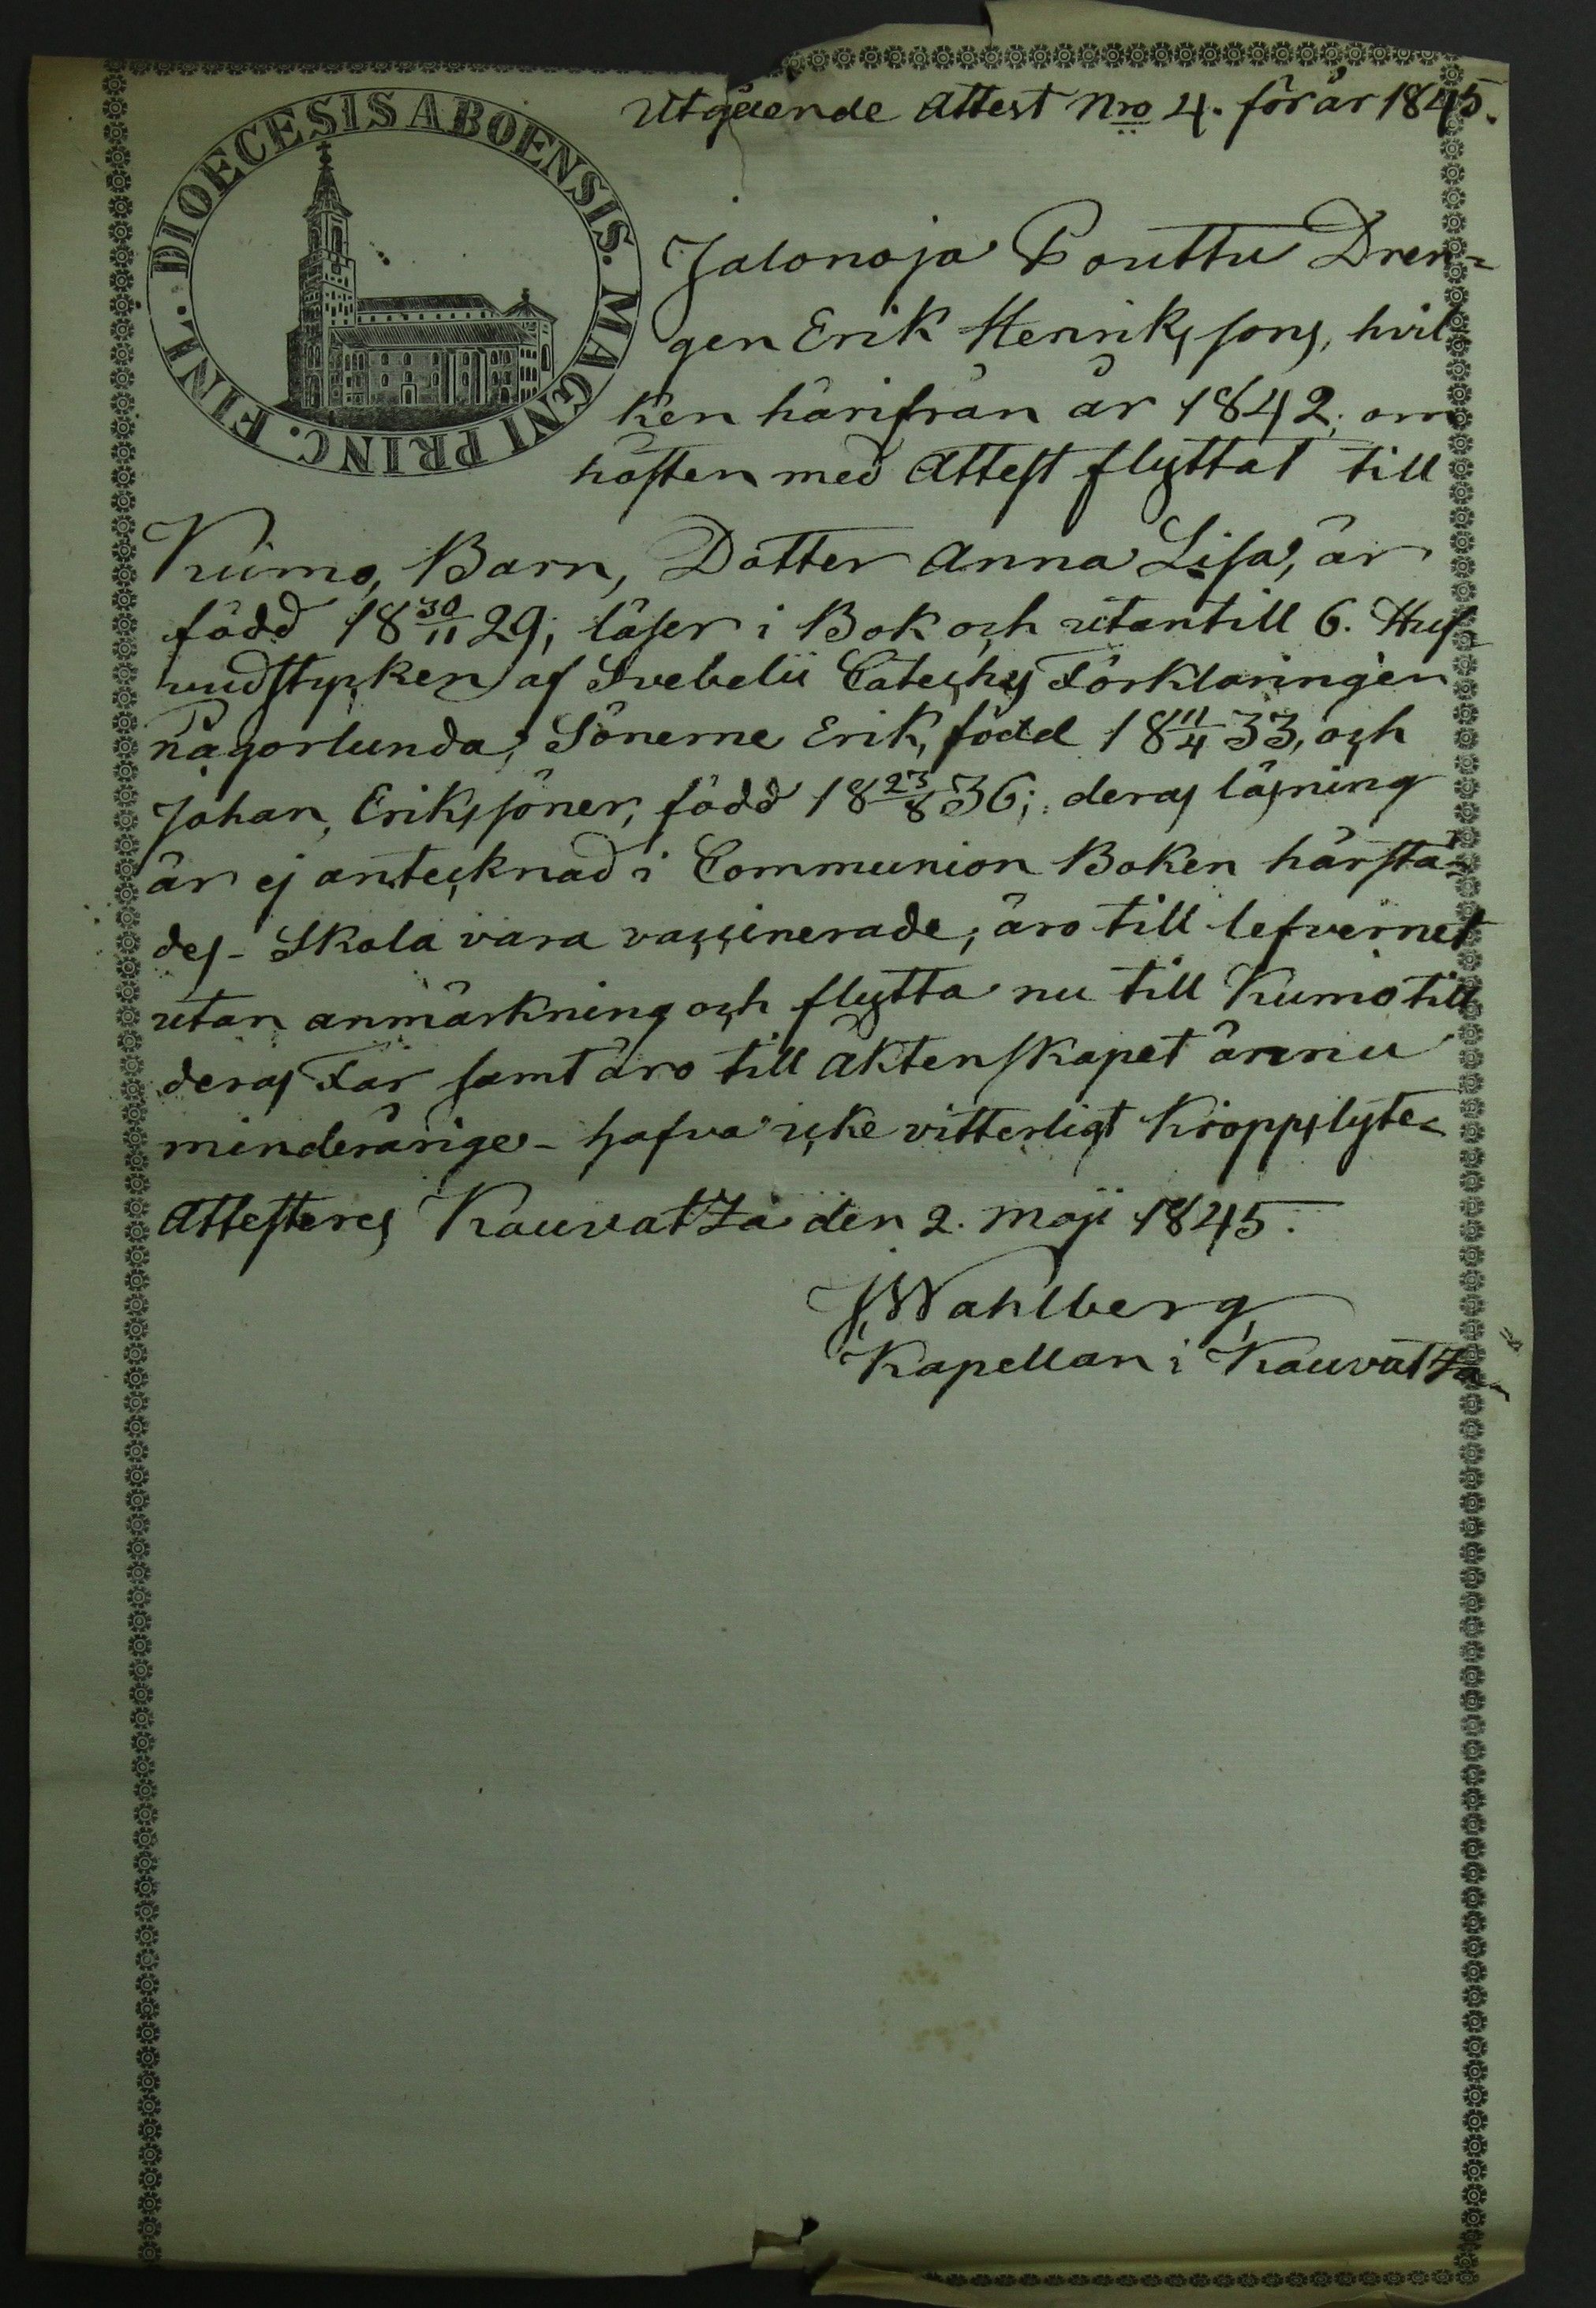 DIOECESIS ABOENSIS. MAGNI PRINC. FINL.
Utgående Attest Nro 4. för år 1845.
Jalonoja Pouttu Dren=
gen Erik Henrikssons, hvil
ken härifrån år 1842, om
hösten med Attest flyttat till
Kumo, Barn, Dotter Anna Lisa, är
född 18 30/11 29; läser i Bok och utantill 6. Huf
vudstycken af Svebelii Cateches Förklaringen
någorlunda; Sönerne Erik, född 18 11/4 33, och
Johan, Erikssöner, född 18 23/8 36; deras läsning
är ej antecknad i Communion Boken härstä=
des - Skola vara vaccinerade; äro till lefvernet
utan anmärkning och flytta nu till Kumo till
deras Far samt äro till äktenskapet ännu
minderårige - hafva icke vitterligt kroppslyte -
Attesteras Kauvatza den 2. Maji 1845.
J. Wahlberg
Kapellan i Kauvatza